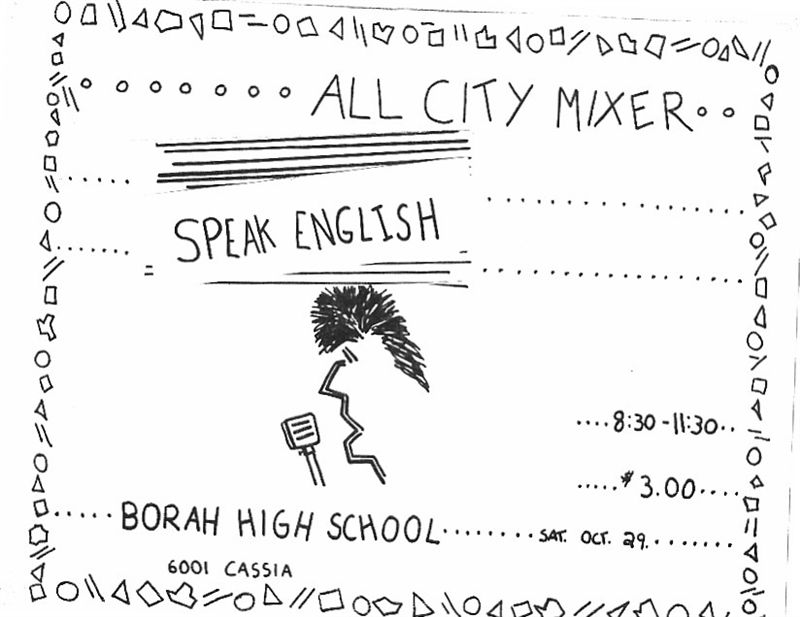 ALL CITY MIXER
SPEAK ENGLISH
8:30-11:30
$3.00
BORAH HIGH SCHOOL SAT. OCT. 29.
6001 CASSIA